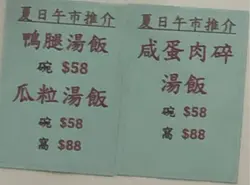 夏日午市推介
鴨腿湯飯
碗 $58
瓜粒湯飯
碗 $58
窩 $88
夏日午市推介
咸蛋肉碎
湯飯
碗 $58
窩 $88